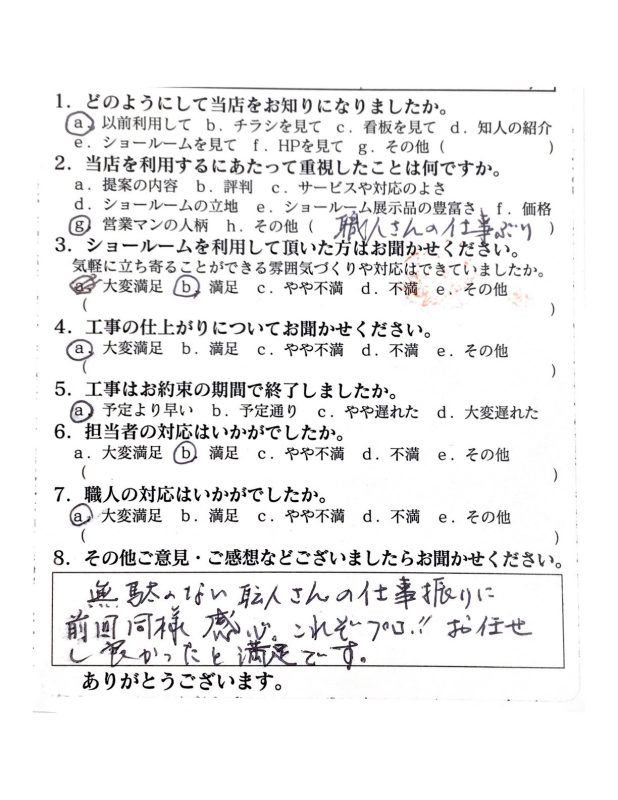 1．どのようにして当店をお知りになりましたか。
a．以前利用して b．チラシを見て c．看板を見て d．知人の紹介
e．ショールームを見て f．HPを見て g．その他（　　　）
2．当店を利用するにあたって重視したことは何ですか。
a．提案の内容 b．評判 c．サービスや対応のよさ
d．ショールームの立地 e．ショールーム展示品の豊富さ f．価格
g．営業マンの人柄 h．その他（ 職人さんの仕事ぶり ）
3．ショールームを利用して頂いた方はお聞かせください。
気軽に立ち寄ることができる雰囲気づくりや対応はできていましたか。
a．大変満足 b．満足 c．やや不満 d．不満 e．その他
（　　　）
4．工事の仕上がりについてお聞かせください。
a．大変満足 b．満足 c．やや不満 d．不満 e．その他
（　　　）
5．工事はお約束の期間で終了しましたか。
a．予定より早い b．予定通り c．やや遅れた d．大変遅れた
6．担当者の対応はいかがでしたか。
a．大変満足 b．満足 c．やや不満 d．不満 e．その他
（　　　）
7．職人の対応はいかがでしたか。
a．大変満足 b．満足 c．やや不満 d．不満 e．その他
（　　　）
8．その他ご意見・ご感想などございましたらお聞かせください。
無駄のない職人さんの仕事振りに
前回同様感心。これぞプロ!! お任せ
し良かったと満足です。
ありがとうございます。